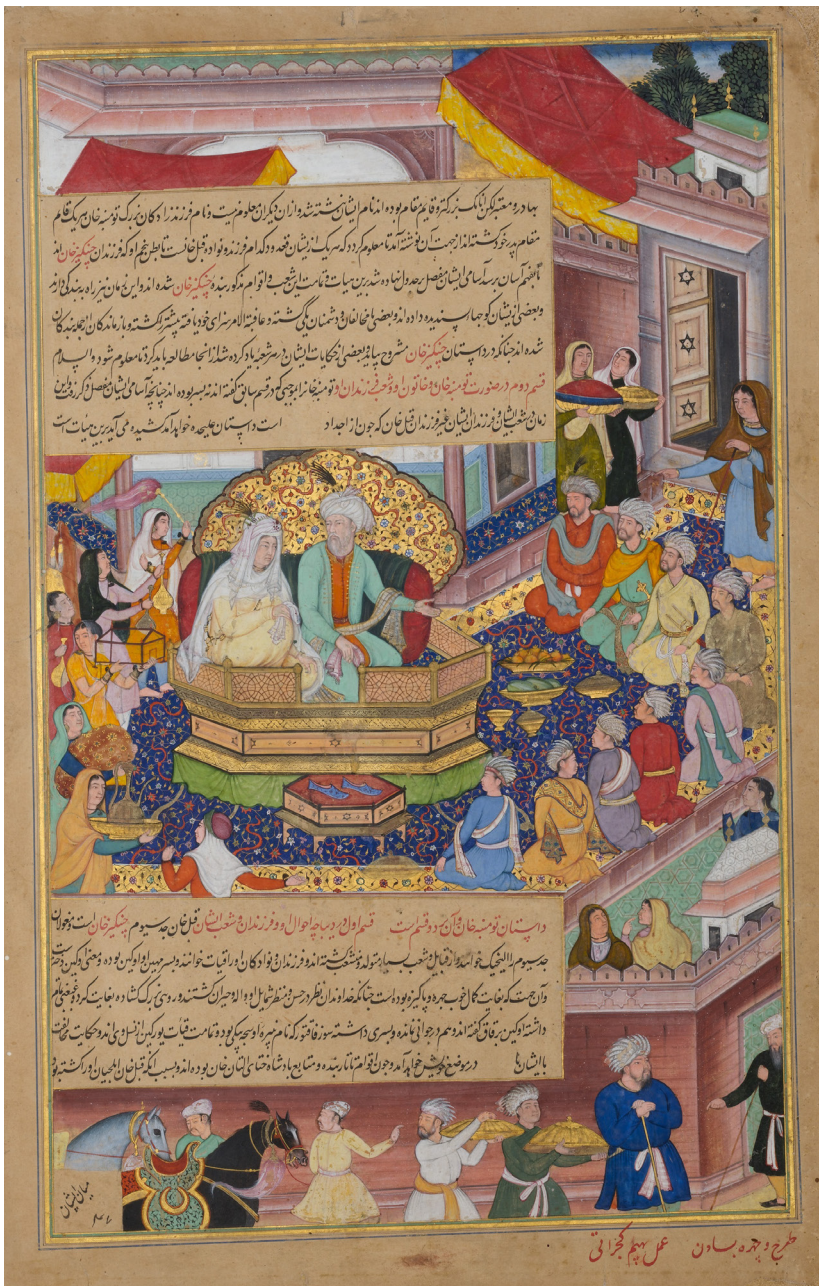 بهادر و معتبر لکن آنانک بزرکتر و قایم مقام بوده اند نام ایشان نبشته شد و ازان دیکران معلوم نیست و نام فرزند زادکان بزرک تومنه خان هریک قایم
مقام پدر خود کشته اند از جهت آن نوشته آمد تا معلوم کردد که هریک از ایشان قعدود کدام فرزند و نواده قبل خانست که فرزندان چنکیز خان اند
تا بفهم آسان برسد آسامی ایشان مفصل بر جدول نهاده شد برین هیات و تمامت این شعب و اقوام مذکور بنده چنکیز خان شده اند و این زمان نیز راه بندکی دارند
و بعضی از ایشان کوچها پسندیده داده اند و بعضی با مخالفان و دشمنان یکی کشته و عاقبة الامر سزای خود یافته بیشتر کشته و بازماندکان بندکان
شده اند چنانکه در داستان چنکیز خان مشروح بیاید و بعضی از حکایات ایشان در هر شعبه یاد کرده شد از انجا مطالعه باید کرد تا معلوم شود والسلام
قسم دوم در صورت تومنه خان و خاتون او و شعب فرزندان او تومنه خانرا بموجبی که در قسم سابق کفته اند نه پسر بوده اند چنانچه آسامی ایشان مفصل ذکر رفت و این
زمان شعب ایشان و فرزندان ایشان غیر فرزندان قبل خان که چون از اجداد است داستان علیحده خواهد آمد کشیده می آید برین هیات است
داستان تومنه خان و آن بر دو قسم است قسم اول در دیباچه احوال او و فرزندان و شعب ایشان قبل خان جد سیوم چنکیز خان است و مغولان
جد سیوم را الینجیک خوانند و از و قبایل و شعب بسیار متولد و منشعب کشته اند و فرزندان و نوادکان او را قیات خوانند و پسر مهین او اوکین بوده و معنی اوکین دختر است
و آن جهت که بغایت کامل خوب چهره و پاکیزه بوده است چنانکه خداوندان نظر در حسن و منظر شمایل او واله و حیران کشتند و روی بزرک کشاده بغایت کرد و غبغبی تمام
داشته اوکین برقاق کفته اند و هم در جوانی نمانده و پسری داشته سورقاقتو که نام بوده و تمامت قیات یورکین از نسل وی اند و حکایت مخالفت
با ایشان در موضع خویش خواهد آمد و چون اقوام تاتار بنده و متابع پادشاه ختای التان خان بوده اند و بسبب انکه قبل خان ایلچیان او را کشته بود
طرح و چهره بساون عمل بهیم کجراتی